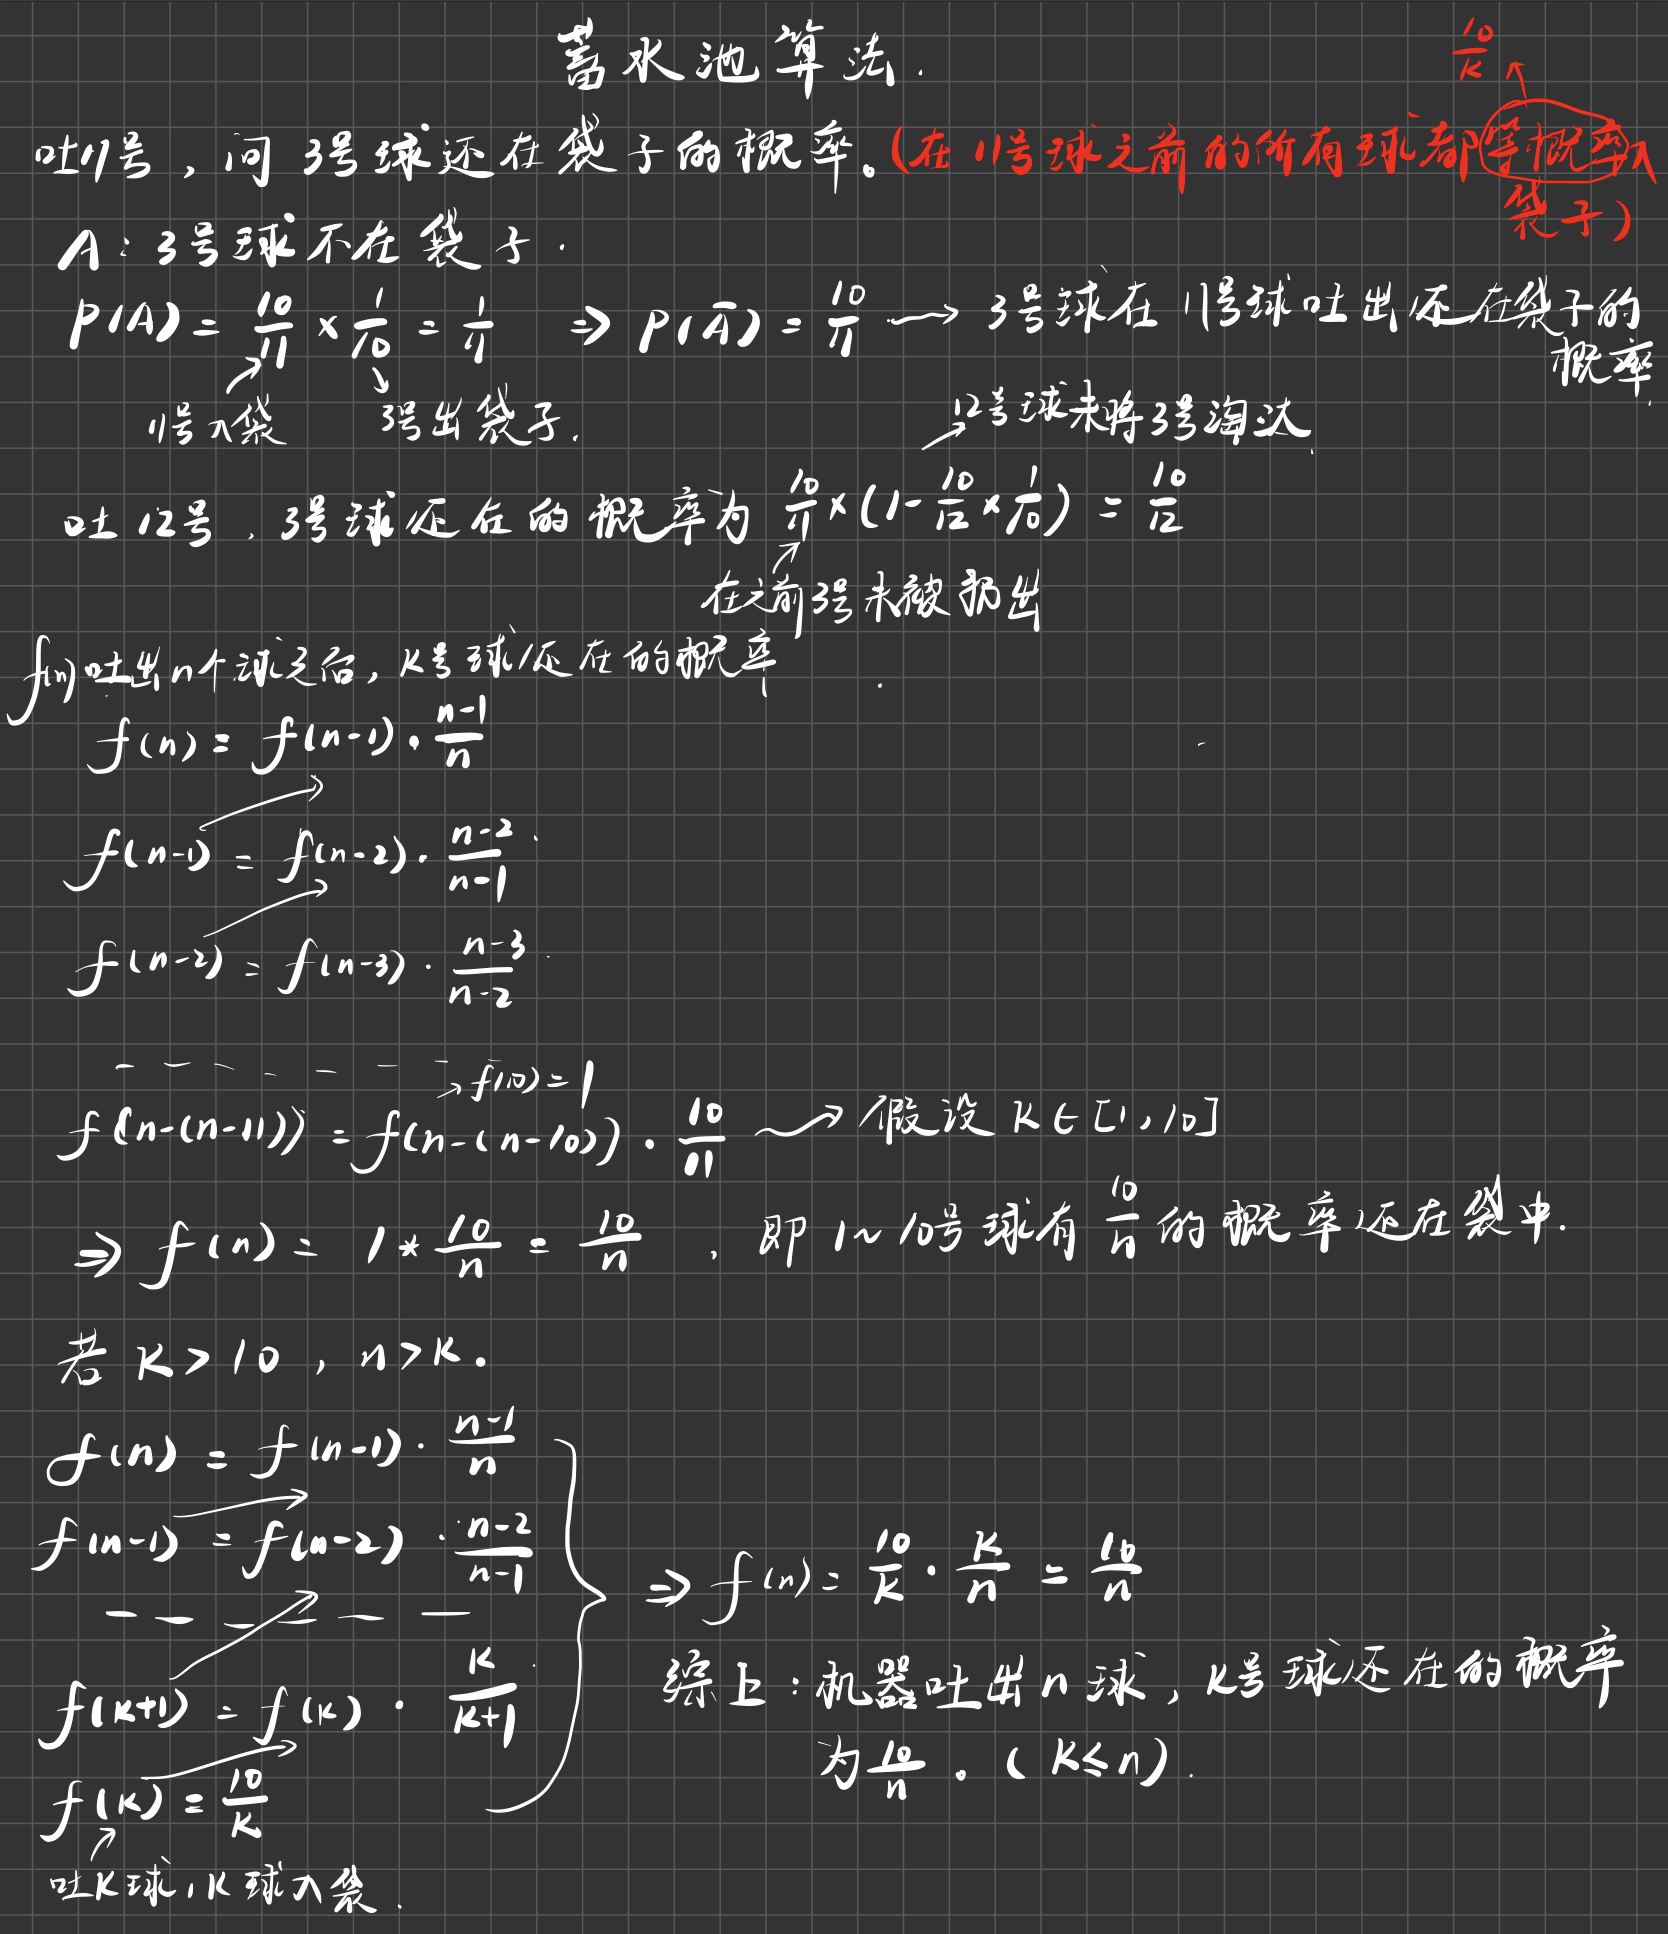 蓄水池算法.
10/K
吐11号，问3号球还在袋子的概率。(在11号球之前的所有球都等概率入
袋子)
A：3号球不在袋子.
P(A) = 10/11 × 1/10 = 1/11 ⇒ P(Ā) = 10/11 → 3号球在11号球吐出还在袋子的
概率.
11号入袋 3号出袋子.
12号球未将3号淘汰.
吐12号，3号球还在的概率为 10/11 × (1 - 10/12 × 1/10) = 10/12
在之前3号未被扔出
f(n)吐出n个球之后，K号球还在的概率
f(n) = f(n-1) · n-1/n
f(n-1) = f(n-2) · n-2/n-1
f(n-2) = f(n-3) · n-3/n-2
- - - - - - - → f(10) = 1
f(n-(n-11)) = f(n-(n-10)) · 10/11 → 假设 K∈[1,10]
⇒ f(n) = 1 * 10/n = 10/n ，即1~10号球有 10/n 的概率还在袋中.
若 K>10，n>K。
f(n) = f(n-1) · n-1/n
f(n-1) = f(n-2) · n-2/n-1
- - - - - -
⇒ f(n) = 10/K · K/n = 10/n
f(K+1) = f(K) · K/K+1
综上：机器吐出n球，K号球还在的概率
为 10/n。(K≤n).
f(K) = 10/K
吐K球，K球入袋.